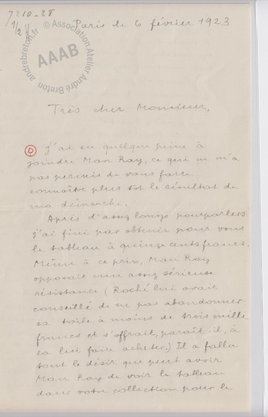 7210-28
1/2
Paris le 6 février 1923
© Association Atelier André Breton
andrebreton.fr
AAAB
Très cher Monsieur,
J'ai eu quelque peine à
joindre Man Ray, ce qui ne m'a
pas permis de vous faire
connaître plus tôt le résultat de
ma démarche.
Après d'assez longs pourparlers
j'ai fini par obtenir pour vous
le tableau à quinze cents francs.
Même à ce prix, Man Ray
opposait une assez sérieuse
résistance (Roché lui avait
conseillé de ne pas abandonner
sa toile à moins de trois mille
francs et s'offrait, paraît-il, à
la lui faire acheter.) Il a fallu
tout le désir que peut avoir
Man Ray de voir le tableau
dans votre collection pour le